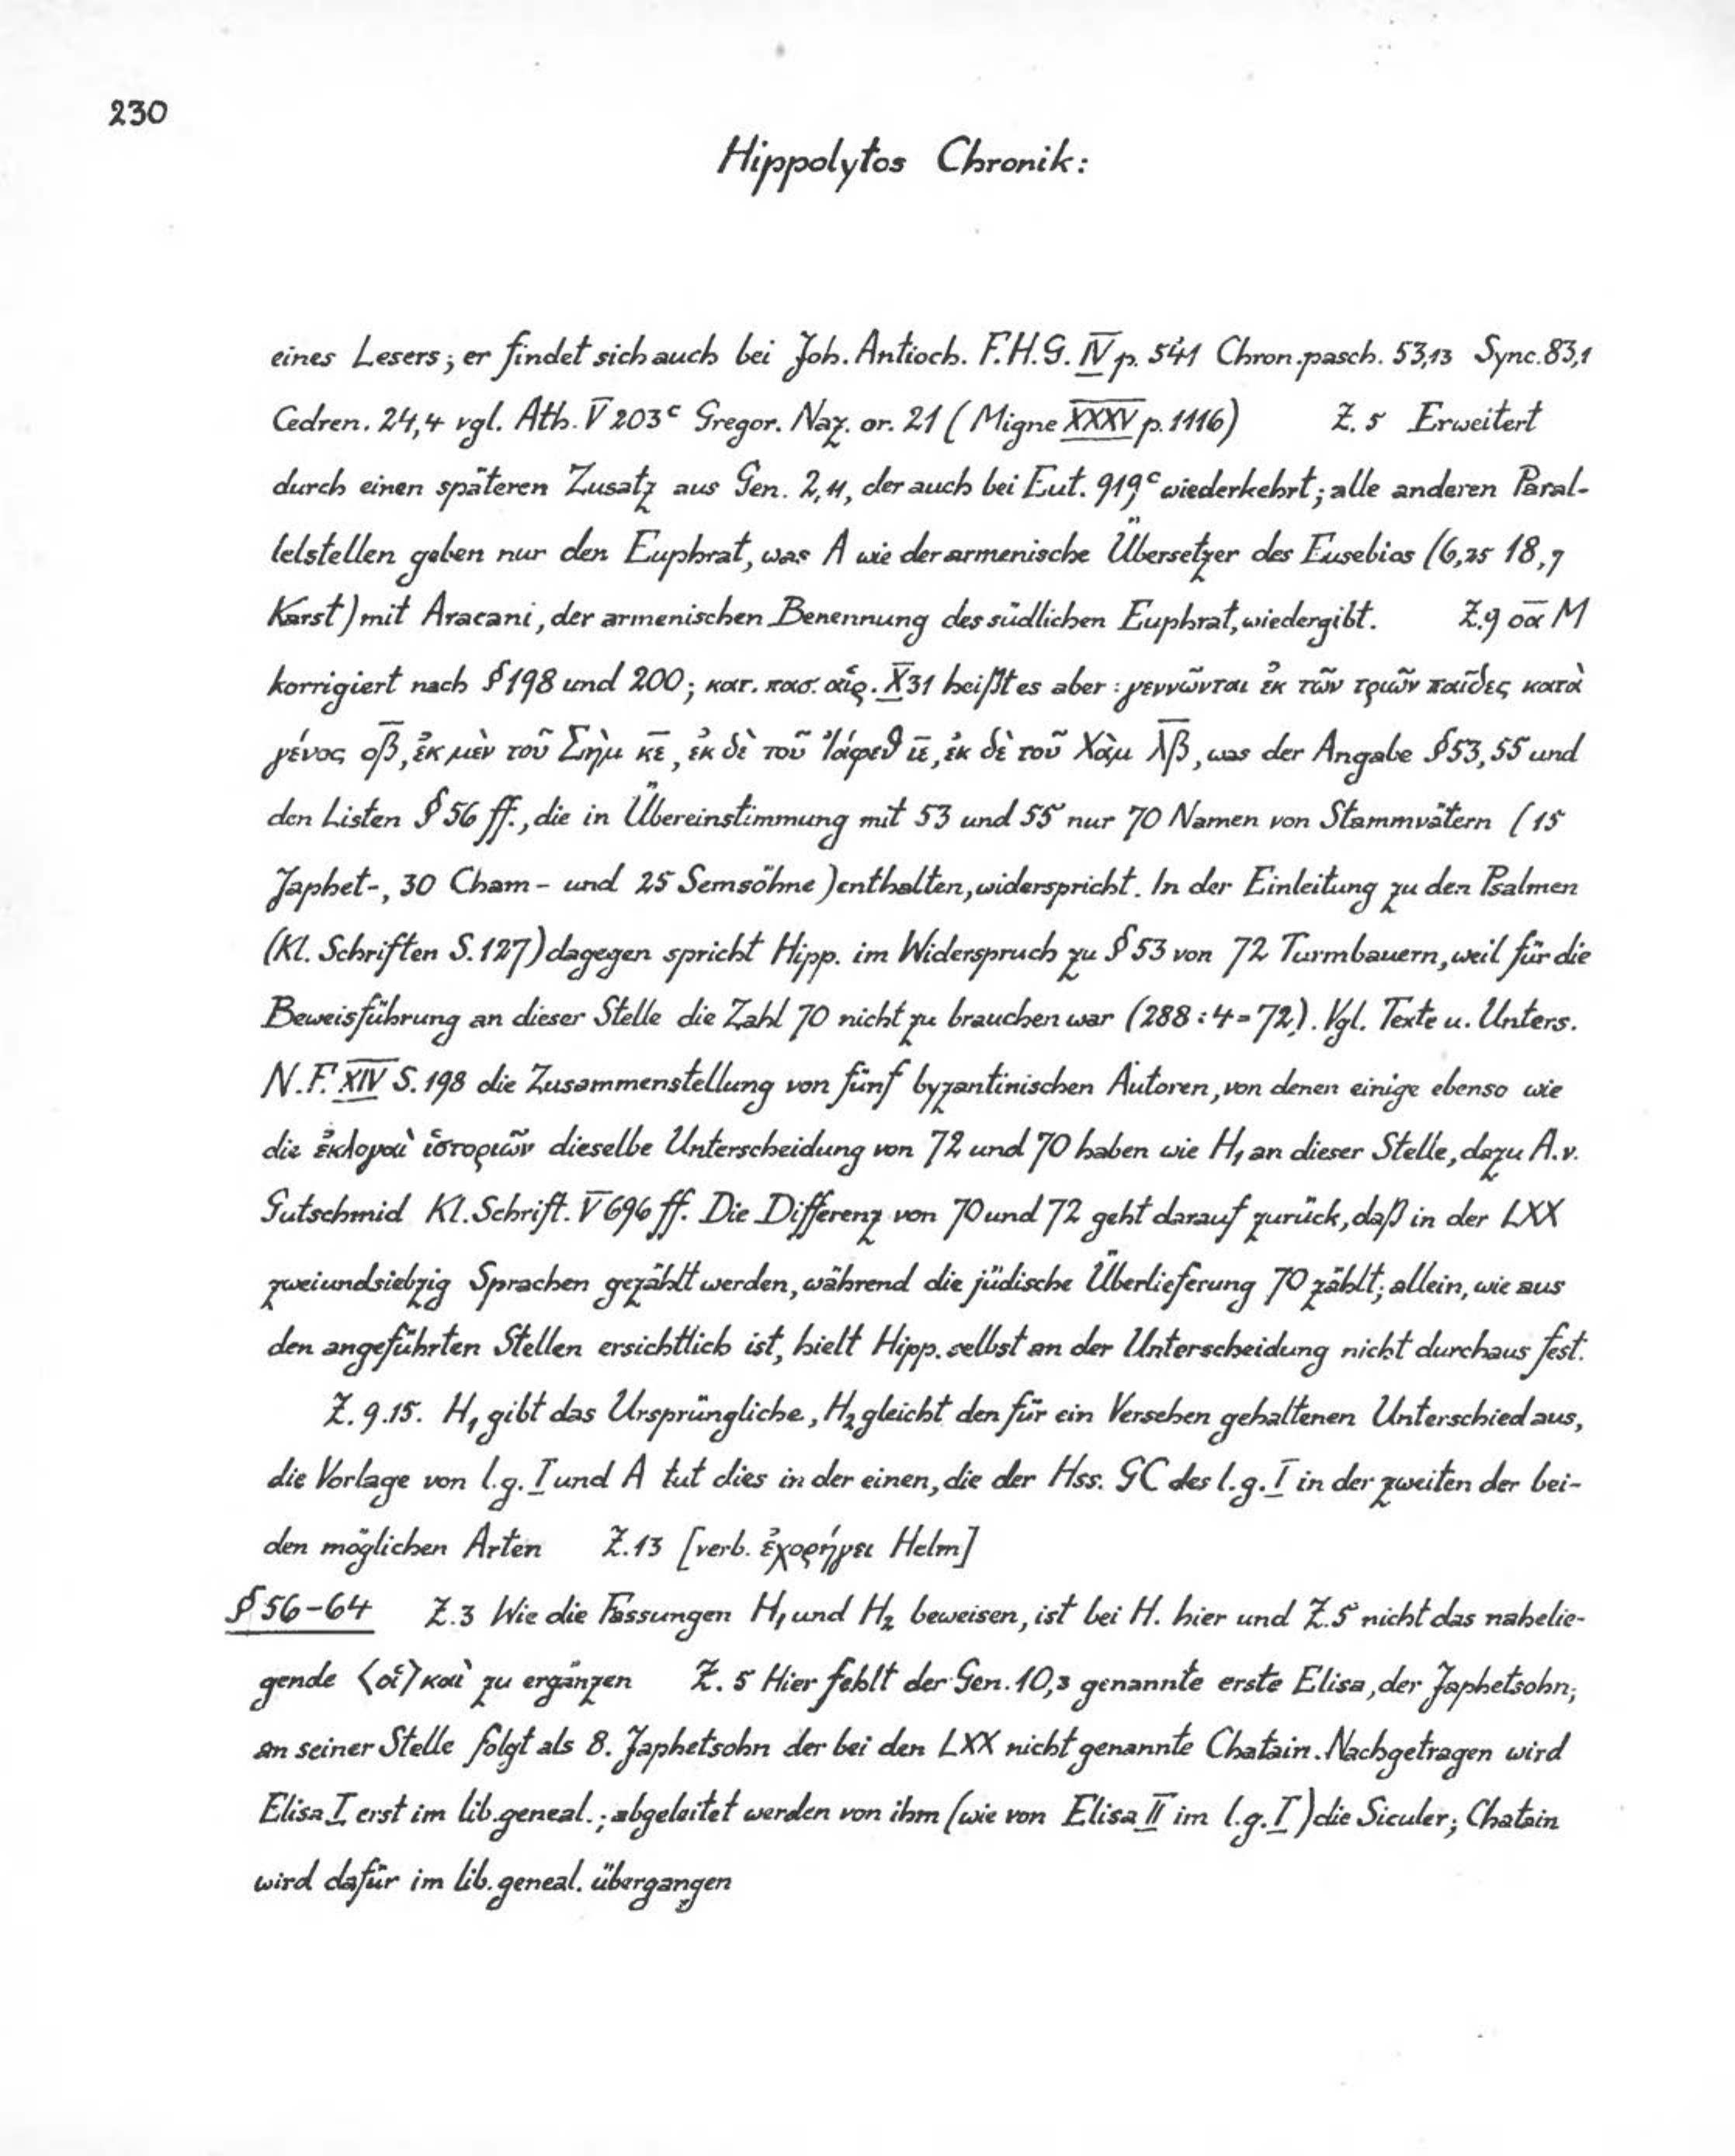 230
Hippolytos Chronik:
eines Lesers; er findet sich auch bei Joh. Antioch. F.H.G. IV p. 541 Chron. pasch. 53,13 Sync. 83,1
Cedren. 24,4 vgl. Ath. V 203c Gregor. Naz. or. 21 (Migne XXXV p. 1116) Z. 5 Erweitert
durch einen späteren Zusatz aus Gen. 2,11, der auch bei Eut. 919c wiederkehrt; alle anderen Paral-
lelstellen geben nur den Euphrat, was A wie der armenische Übersetzer des Eusebios (6,25 18,7
Karst) mit Aracani, der armenischen Benennung des südlichen Euphrat, wiedergibt. Z. 9 οα M
korrigiert nach § 198 und 200; κατ. πασ. αἱρ. X 31 heißt es aber: γεννῶνται ἐκ τῶν τριῶν παῖδες κατὰ
γένος οβ, ἐκ μὲν τοῦ Σὴμ κε, ἐκ δὲ τοῦ Ἰάφεθ ιε, ἐκ δὲ τοῦ Χὰμ λβ, was der Angabe § 53, 55 und
den Listen § 56 ff., die in Übereinstimmung mit 53 und 55 nur 70 Namen von Stammvätern (15
Japhet-, 30 Cham- und 25 Semsöhne) enthalten, widerspricht. In der Einleitung zu den Psalmen
(Kl. Schriften S. 127) dagegen spricht Hipp. im Widerspruch zu § 53 von 72 Turmbauern, weil für die
Beweisführung an dieser Stelle die Zahl 70 nicht zu brauchen war (288 : 4 = 72). Vgl. Texte u. Unters.
N.F. XIV S. 198 die Zusammenstellung von fünf byzantinischen Autoren, von denen einige ebenso wie
die ἐκλογαὶ ἱστοριῶν dieselbe Unterscheidung von 72 und 70 haben wie H1 an dieser Stelle, dazu A. v.
Gutschmid Kl. Schrift. V 696 ff. Die Differenz von 70 und 72 geht darauf zurück, daß in der LXX
zweiundsiebzig Sprachen gezählt werden, während die jüdische Überlieferung 70 zählt; allein, wie aus
den angeführten Stellen ersichtlich ist, hielt Hipp. selbst an der Unterscheidung nicht durchaus fest.
Z. 9.15. H1 gibt das Ursprüngliche, H2 gleicht den für ein Versehen gehaltenen Unterschied aus,
die Vorlage von l.g. I und A tut dies in der einen, die der Hss. GC des l.g. I in der zweiten der bei-
den möglichen Arten Z. 13 [verb. ἐχορήγει Helm]
§ 56-64 Z. 3 Wie die Fassungen H1 und H2 beweisen, ist bei H. hier und Z. 5 nicht das nahelie-
gende ⟨οἱ⟩ καὶ zu ergänzen Z. 5 Hier fehlt der Gen. 10,3 genannte erste Elisa, der Japhetsohn;
an seiner Stelle folgt als 8. Japhetsohn der bei den LXX nicht genannte Chatain. Nachgetragen wird
Elisa I erst im lib. geneal.; abgeleitet werden von ihm (wie von Elisa II im l.g. I) die Siculer; Chatain
wird dafür im lib. geneal. übergangen